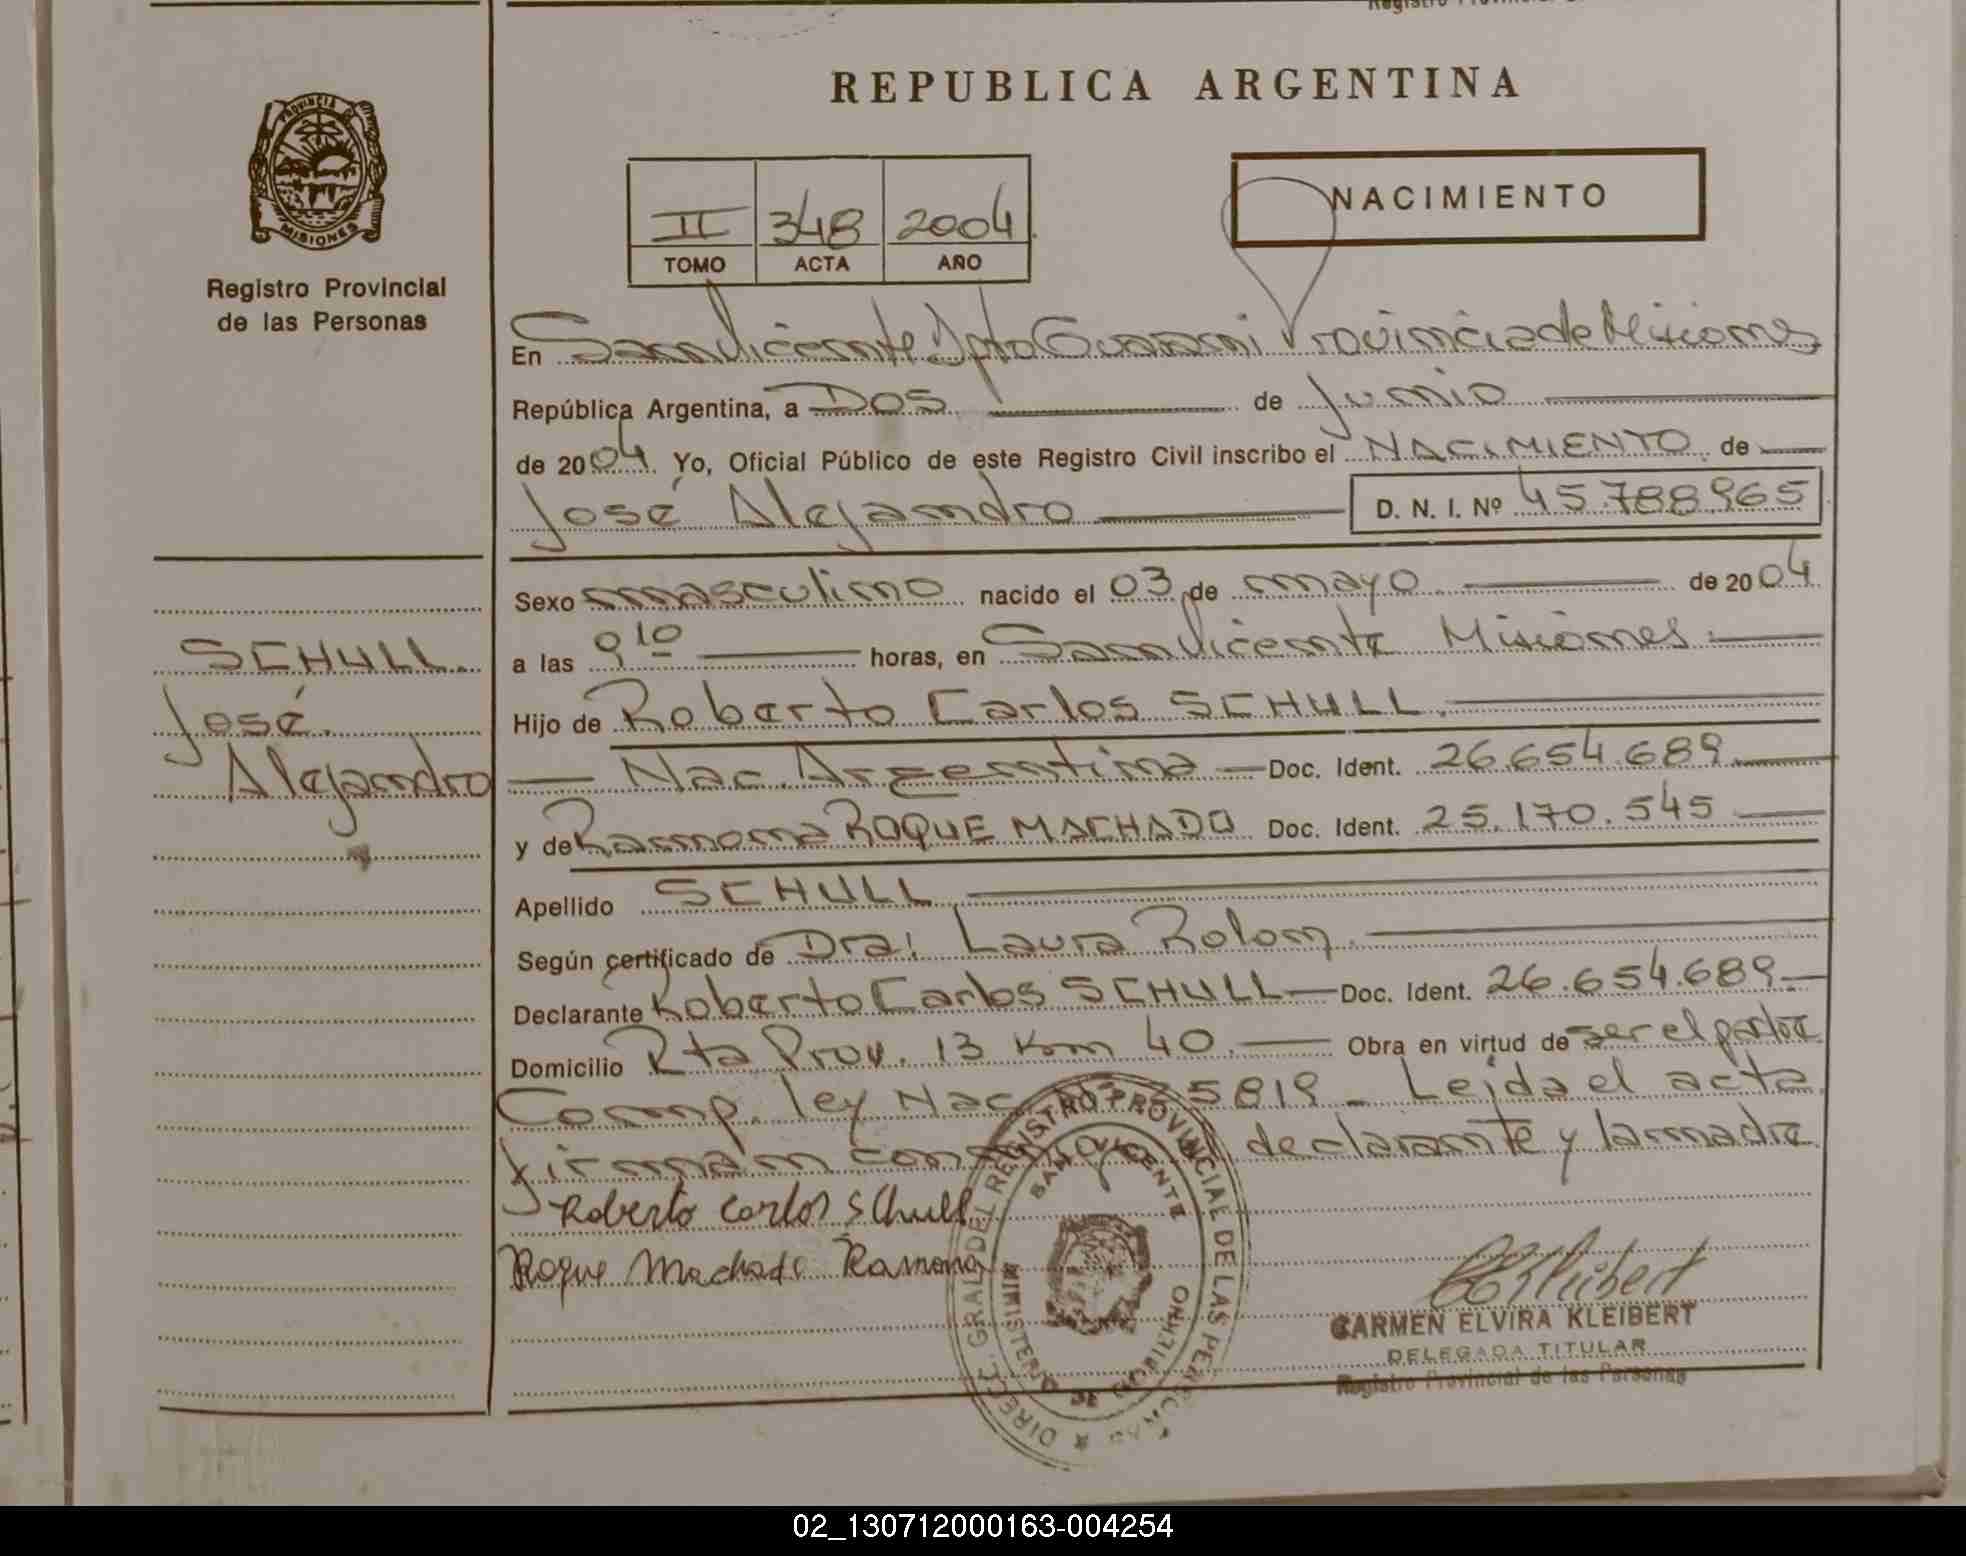 REPUBLICA ARGENTINA
PROVINCIA DE
MISIONES
Registro Provincial
de las Personas
II 348 2004
TOMO ACTA AÑO
NACIMIENTO
En San Vicente Dpto Guarani Provincia de Misiones
República Argentina, a Dos de Junio
de 2004. Yo, Oficial Público de este Registro Civil inscribo el NACIMIENTO de
José Alejandro D. N. I. Nº 45.788.965
Sexo masculino nacido el 03 de mayo de 2004
a las 9 10 horas, en San Vicente Misiones
Hijo de Roberto Carlos SCHULL
Nac. Argentina Doc. Ident. 26.654.689
y de Ramona ROQUE MACHADO Doc. Ident. 25.170.545
Apellido SCHULL
Según certificado de Dra: Laura Rolon
Declarante Roberto Carlos SCHULL Doc. Ident. 26.654.689
Domicilio Rta Prov. 13 Km 40 Obra en virtud de ser el padre
Comp. ley Nac 25819 - Leida el acta
firman con declarante y la madre
Roberto Carlos Schull
Roque Machado Ramona
SCHULL
José
Alejandro
DIRECC. GRAL. DEL REGISTRO PROVINCIAL DE LAS PERSONAS
SAN VICENTE
MINISTERIO DE GOBIERNO
CARMEN ELVIRA KLEIBERT
DELEGADA TITULAR
Registro Provincial de las Personas
02_130712000163-004254